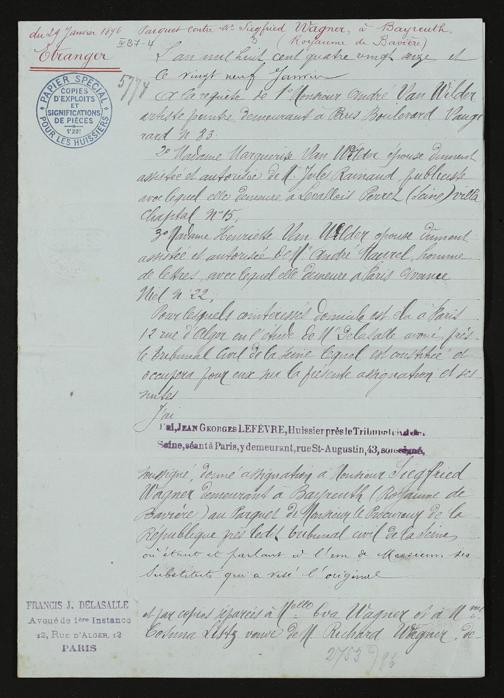 du 29 Janvier 1896 Parquet contre Mr Siegfried Wagner, à Bayreuth
(Royaume de Bavière)
Etranger
PAPIER SPÉCIAL
COPIES
D'EXPLOITS
ET
SIGNIFICATIONS
DE PIÈCES
POUR LES HUISSIERS
L'an mil huit cent quatre vingt seize et
le vingt neuf Janvier
A la requête de 1° Monsieur André Van Wilder
artiste peintre demeurant à Paris Boulevard Vaugi
rard n° 83
2° Madame Marguerite Van Wilder épouse dûment
assistée et autorisée de Mr Jules Rainaud, publiciste
avec lequel elle demeure à Levallois Perret (Seine) villa
Chaptal n° 15.
3° Madame Henriette Van Wilder épouse dûment
assistée et autorisée de Mr André Maurel, homme
de lettres, avec lequel elle demeure à Paris Avenue
Niel n° 22.
Pour lesquels domicile est élu à Paris
12 rue d'Alger en l'étude de Me Delasalle avoué près
le tribunal civil de la Seine lequel est constitué et
occupera pour eux sur la présente assignation et ses
suites
J'ai
JEAN GEORGES LEFÈVRE, Huissier près le Tribunal
Seine, séant à Paris, y demeurant, rue St-Augustin, 43, soussigné,
soussigné, donné assignation à Monsieur Siegfried
Wagner demeurant à Bayreuth (Royaume de
Bavière) au Parquet de Monsieur le Procureur de la
République près ledt tribunal civil de la Seine
où étant et parlant à l'un de Messieurs ses
Substituts qui a visé l'original
FRANCIS J. DELASALLE
Avoué de 1ère Instance
12, RUE D'ALGER, 12
PARIS
et par copies séparées à Melle Eva Wagner et à Mme
Cosima Listz veuve de Mr Richard Wagner, de-